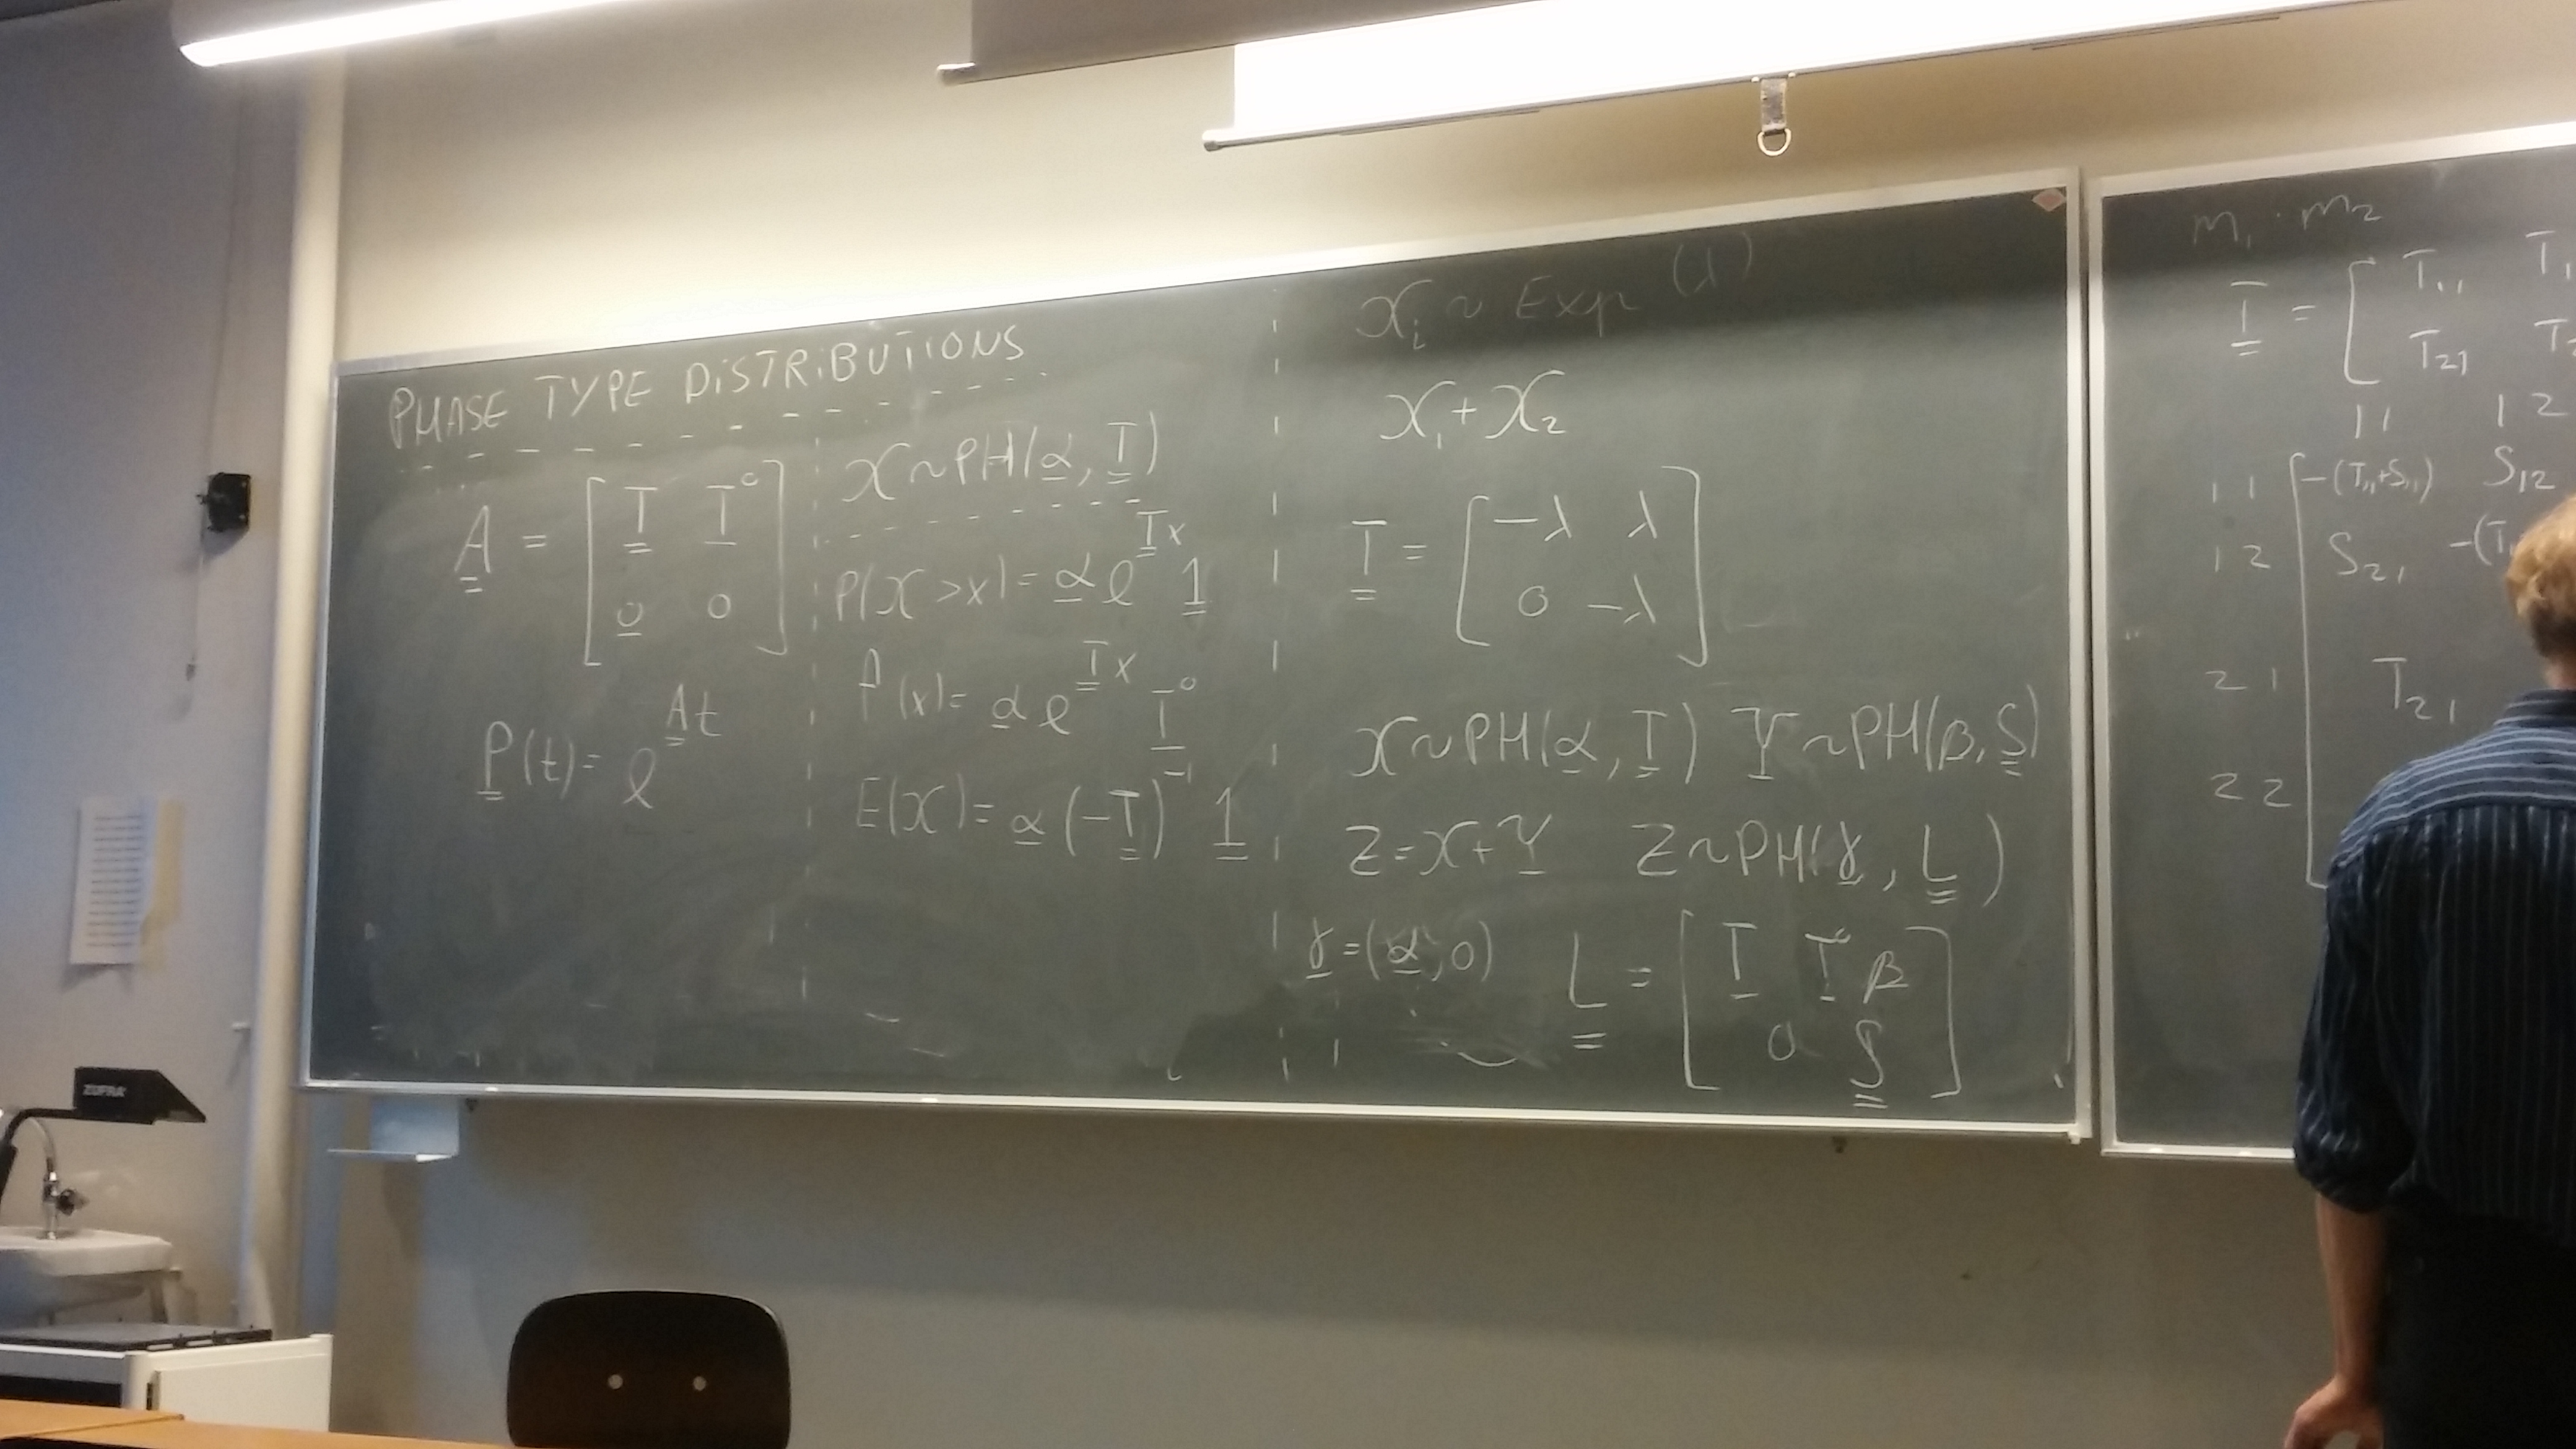 PHASE TYPE DISTRIBUTIONS
A = [ T T°
0 0 ]
P(t) = e^{At}
X ~ PH(α, T)
P(X > x) = α e^{Tx} 1
f(x) = α e^{Tx} T°
E(X) = α (-T)^{-1} 1
X_i ~ Exp (λ)
X_1 + X_2
T = [ -λ λ
0 -λ ]
X ~ PH(α, T) Y ~ PH(β, S)
Z = X + Y Z ~ PH(γ, L)
γ = (α, 0) L = [ T T° β
0 S ]
m_1 · m_2
T = [ T_{11}
T_{21}
11 12
11 [ -(T_{11}+S_{11}) S_{12}
12 S_{21} -(T
21 T_{21}
22
ZOFRA